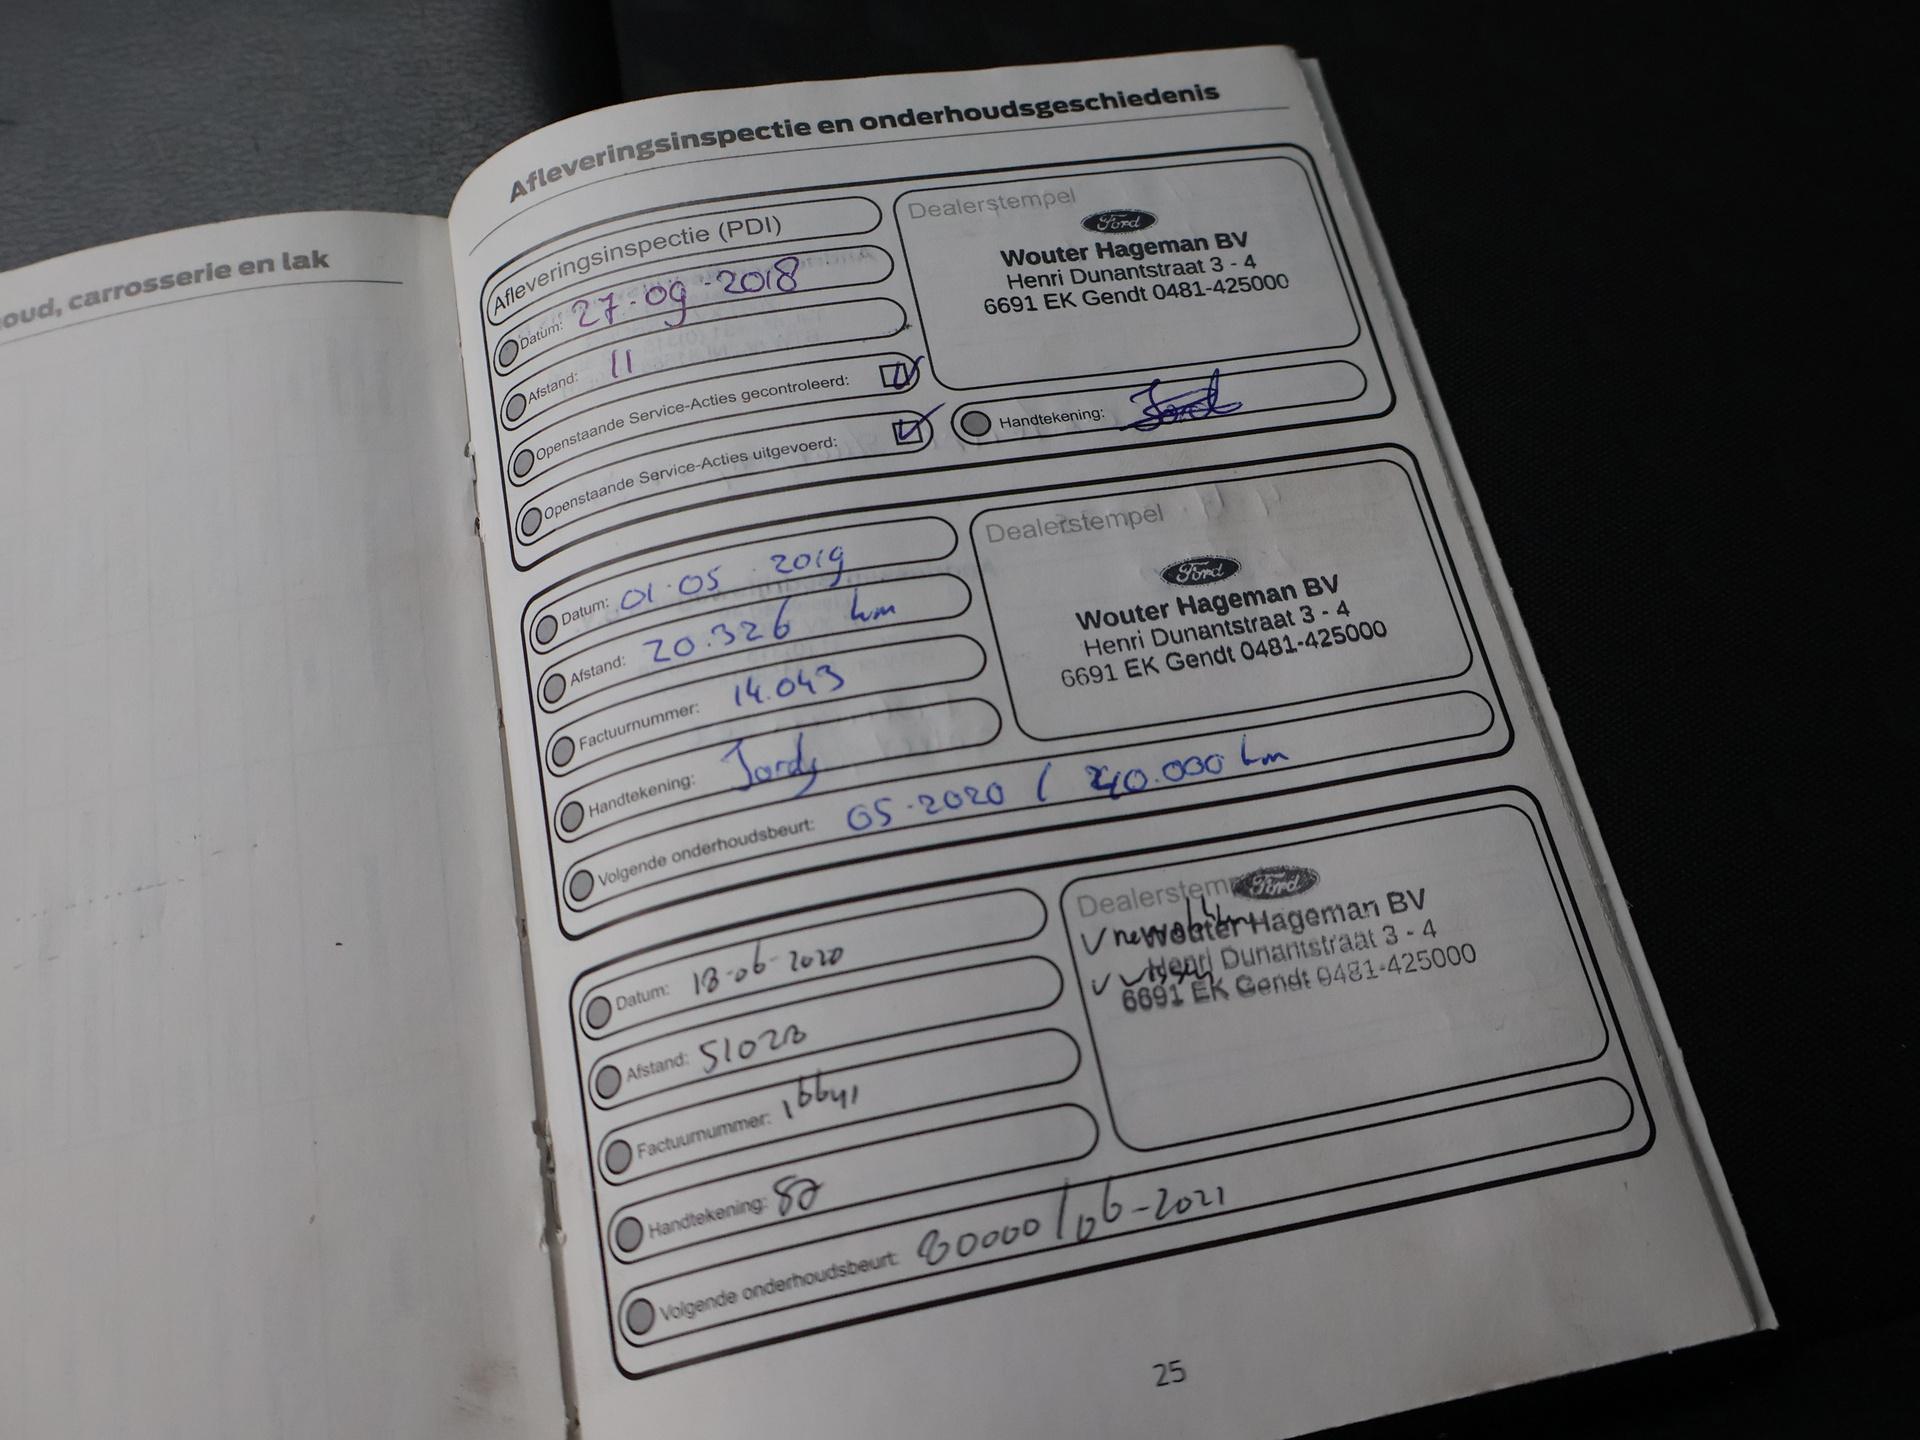 oud, carrosserie en lak
Afleveringsinspectie en onderhoudsgeschiedenis
Afleveringsinspectie (PDI)
Datum: 27-09-2018
Afstand: 11
Openstaande Service-Acties gecontroleerd:
Openstaande Service-Acties uitgevoerd:
Dealerstempel
Ford
Wouter Hageman BV
Henri Dunantstraat 3 - 4
6691 EK Gendt 0481-425000
Handtekening:
Datum: 01-05-2019
Afstand: 20.326 km
Factuurnummer: 14.043
Handtekening: Jordy
Volgende onderhoudsbeurt: 05-2020 / 40.000 km
Dealerstempel
Ford
Wouter Hageman BV
Henri Dunantstraat 3 - 4
6691 EK Gendt 0481-425000
Datum: 18-06-2020
Afstand: 51028
Factuurnummer: 16641
Handtekening:
Volgende onderhoudsbeurt: 80000 / 06-2021
Dealerstempel
Ford
Wouter Hageman BV
Henri Dunantstraat 3 - 4
6691 EK Gendt 0481-425000
25